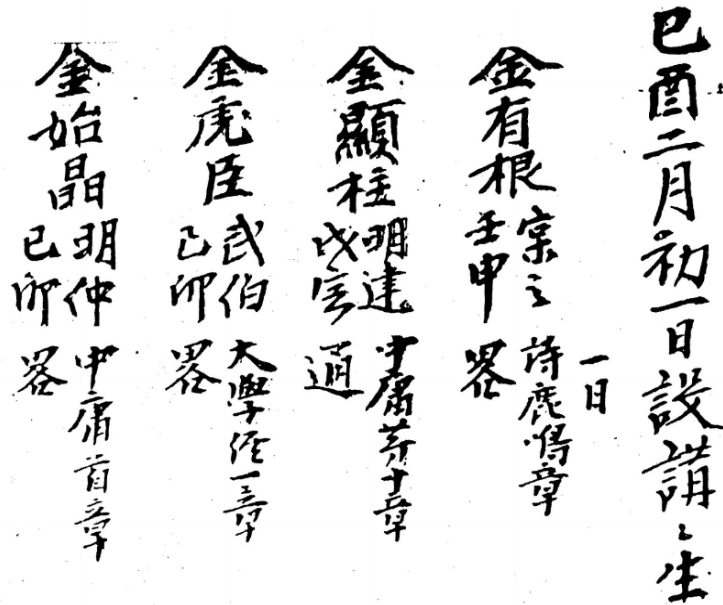 己酉二月初一日設講〻生
一日
金有根 寀之 壬申 詩鹿鳴章 畧
金顯柱 明建 戊寅 中庸第十章 通
金虎臣 武伯 己卯 大學經一章 畧
金始晶 明仲 己卯 中庸首章 畧